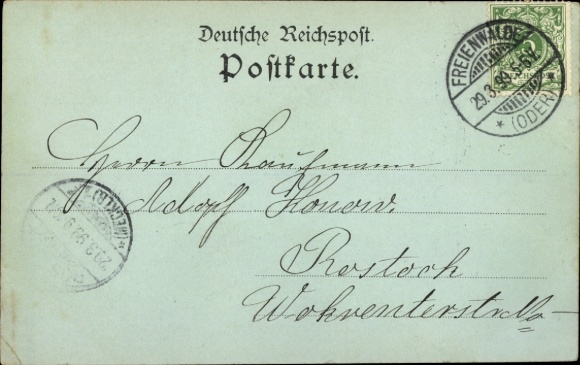 Deutsche Reichspost.
Postkarte.
FREIENWALDE
29.3.99.5-6N.
* (ODER) *
Herrn Kaufmann
Adolf Honow.
Rostock
Wokrenterstr.
(MECKLB)